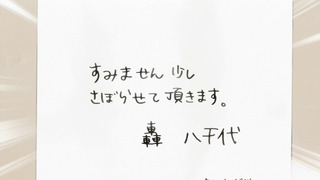 すみません少し
さぼらせて頂きます。
轟 八千代